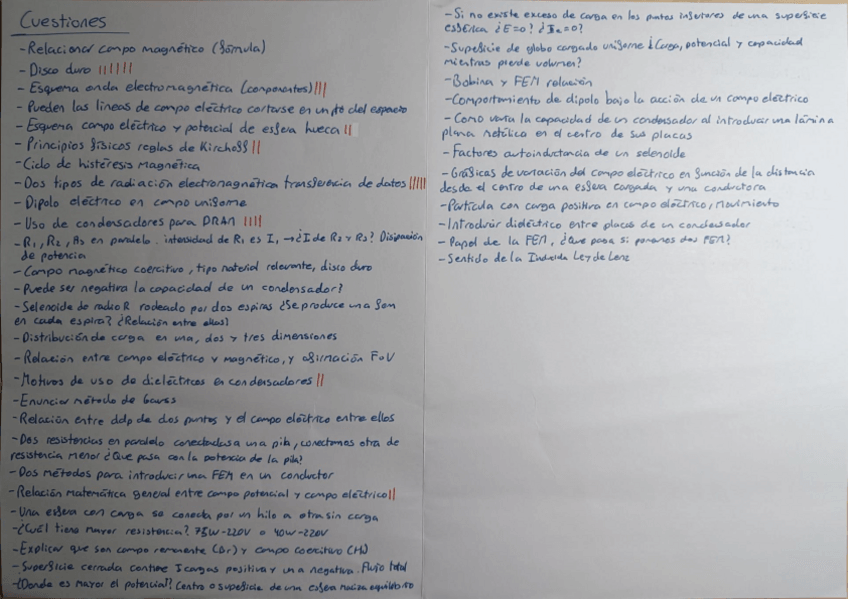 Cuestiones
- Relacionar campo magnético (fórmula)
- Disco duro ||||||
- Esquema onda electromagnética (componentes) |||
- Pueden las líneas de campo eléctrico cortarse en un pto del espacio
- Esquema campo eléctrico y potencial de esfera hueca ||
- Principios físicos reglas de Kirchoff ||
- Ciclo de histéresis magnética
- Dos tipos de radiación electromagnética transferencia de datos |||||
- Dipolo eléctrico en campo uniforme
- Uso de condensadores para DRAM ||||
- R1, R2, R3 en paralelo. intensidad de R1 es I1 → ¿I de R2 y R3? Disipación
de potencia
- Campo magnético coercitivo, tipo material relevante, disco duro
- Puede ser negativa la capacidad de un condensador?
- Selenoide de radio R rodeado por dos espiras ¿Se produce una fem
en cada espira? ¿Relación entre ellas?
- Distribución de carga en una, dos y tres dimensiones
- Relación entre campo eléctrico y magnético, y afirmación F o V
- Motivos de uso de dieléctricos en condensadores ||
- Enunciar método de Gauss
- Relación entre ddp de dos puntos y el campo eléctrico entre ellos
- Dos resistencias en paralelo conectadas a una pila, conectamos otra de
resistencia menor ¿Que pasa con la potencia de la pila?
- Dos métodos para introducir una FEM en un conductor
- Relación matemática general entre campo potencial y campo eléctrico ||
- Una esfera con carga se conecta por un hilo a otra sin carga
- ¿Cuál tiene mayor resistencia? 75W-220V o 40W-220V
- Explicar que son campo remanente (Br) y campo coercitivo (Hc)
- Superficie cerrada contiene 2 cargas positiva y una negativa. Flujo total
- ¿Donde es mayor el potencial? Centro o superficie de una esfera maciza equilibrio
- Si no existe exceso de carga en los puntos inferiores de una superficie
esférica ¿E=0? ¿=0?
- Superficie de globo cargado uniforme ¿Carga, potencial y capacidad
mientras pierde volumen?
- Bobina y FEM relación
- Comportamiento de dipolo bajo la acción de un campo eléctrico
- Como varia la capacidad de un condensador al introducir una lámina
plana metálica en el centro de sus placas
- Factores autoinductancia de un selenoide
- Gráficas de variación del campo eléctrico en función de la distancia
desde el centro de una esfera cargada y una conductora
- Partícula con carga positiva en campo eléctrico, movimiento
- Introducir dieléctrico entre placas de un condensador
- Papel de la FEM, ¿Que pasa si ponemos dos FEM?
- Sentido de la Inducida Ley de Lenz